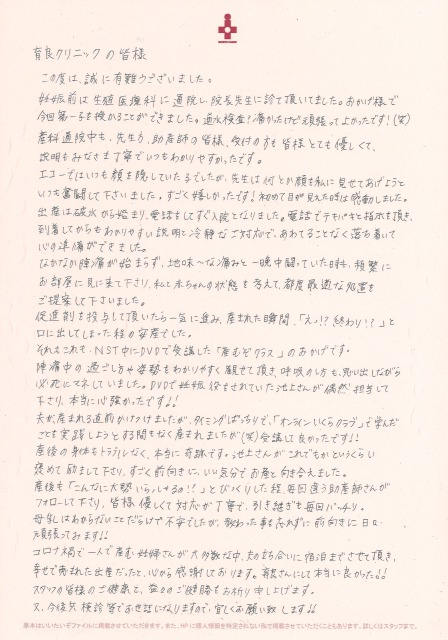 育良クリニックの皆様
この度は、誠に有難うございました。
妊娠前は生殖医療科に通院し、院長先生に診て頂いてました。おかげ様で
今回第一子を授かることができました。通水検査?痛かったけど頑張ってよかったです!(笑)
産科通院中も、先生方、助産師の皆様、受付の方も皆様とても優しくて、
説明もみなさま丁寧でいつもわかりやすかったです。
エコーではいつも顔を隠していたるでたが、先生は何とか顔を私に見せてあげようと
いつも奮闘して下さいました。すごく嬉しかったです!初めて目が見えた時は感動しました。
出産は破水から始まり、電話をしてすぐ入院となりました。電話でテキパキと指示を頂き、
到着してからもわかりやすい説明と冷静なご対応で、あわてることなく落ち着いて
心の準備ができました。
なかなか陣痛が始まらず、地味〜な痛みと一晩中闘っていた時も、頻繁に
お部屋に見に来て下さり、私と赤ちゃんの状態を考えて、都度最適な処置を
ご提案して下さいました。
促進剤を投与して頂いたら一気に進み、産まれた瞬間、「えっ!?終わり!?」と
口に出してしまった程の安産でした。
それもこれも、NST中にDVDで受講した「産むぞクラス」のおかげです。
陣痛中の過ごし方や姿勢もわかりやすく観せて頂き、呼吸のし方も思い出しながら
必死にマネしていました。DVDで妊娠役をされていた池上さんが偶然担当して
下さり、本当に心強かったです!!
夫が産まれる直前かけつけましたが、タイミングばっちりで、「オンラインいくらクラブ」で学んだ
ことを実践しようとする間もなく産まれましたが(笑)受講して良かったです!!
産後の身体もトラブルなく、本当に奇跡です。池上さんがこれでもかというくらい
褒めて励まして下さり、すごく前向きに、いい気分でお産と向き合えました。
産後も「こんなに大勢いらっしゃるの!?」とびっくりした程、毎回違う助産師さんが
フォローして下さり、皆様優しくて対応が丁寧で、引き継ぎも毎回バッチリ。
母乳はわからないことだらけで不安でしたが、教わった事を忘れずに前向きに日々
頑張ってみます!!
コロナ禍で一人で産む妊婦さんが大多数な中、夫の立ち会いに宿泊までさせて頂き、
幸せで恵まれた出産だったと、心から感謝しております。育良さんにして本当に良かった!!
スタッフの皆様のご健康と、益々のご健勝をお祈り申し上げます。
又、今後共検診等でお世話になりますので、宜しくお願い致します!!
基本はいいたいぞファイルに掲載させていただきます。また、HPに個人情報を特定されない形で掲載させていただくこともあります。詳しくはスタッフまで。